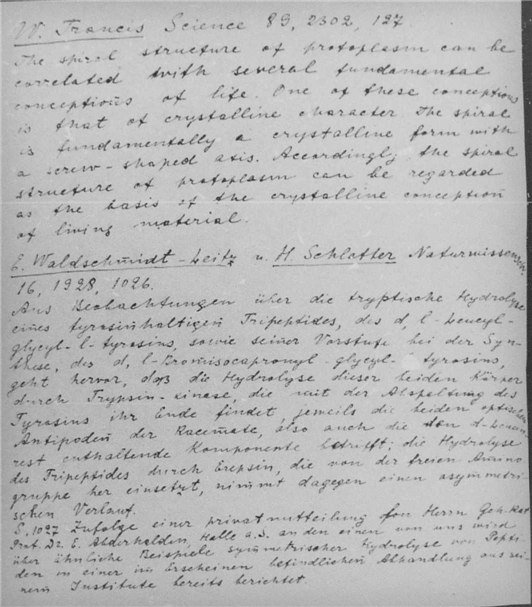 W. Francis Science 89, 2302, 127
The spiral structure of protoplasm can be
correlated with several fundamental
conceptions of life. One of these conceptions
is that of crystalline character. The spiral
is fundamentally a crystalline form with
a screw-shaped axis. Accordingly, the spiral
structure of protoplasm can be regarded
as the basis of the crystalline conception
of living material.
E. Waldschmidt-Leitz u. H Schlatter Naturwissensch.
16, 1928, 1026.
Aus Beobachtungen über die tryptische Hydrolyse
eines tyrosinhaltigen Tripeptides, des d, l-Leucyl-
glycyl-l-tyrosins, sowie seiner Vorstufe bei der Syn-
these, des d, l-Bromisocapronyl-glycyl-tyrosins,
geht hervor, daß die Hydrolyse dieser beiden Körper
durch Trypsin-kinase, die mit der Abspaltung des
Tyrosins ihr Ende findet, jeweils die beiden optischen
Antipoden der Racemate, also auch die den d-Leucin
rest enthaltende Komponente betrifft; die Hydrolyse
des Tripeptides durch Erepsin, die von der freien Amino
gruppe her einsetzt, nimmt dagegen einen asymmetri-
schen Verlauf.
S. 1027 Zufolge einer privatmitteilung von Herrn Geh. Rat
Prof. Dr. E. Abderhalden, Halle a.S. an den einen von uns wird
über ähnliche Beispiele symmetrischer Hydrolyse von Pepti-
den in einer im Erscheinen befindlichen Abhandlung aus sei-
nem Institute bereits berichtet.